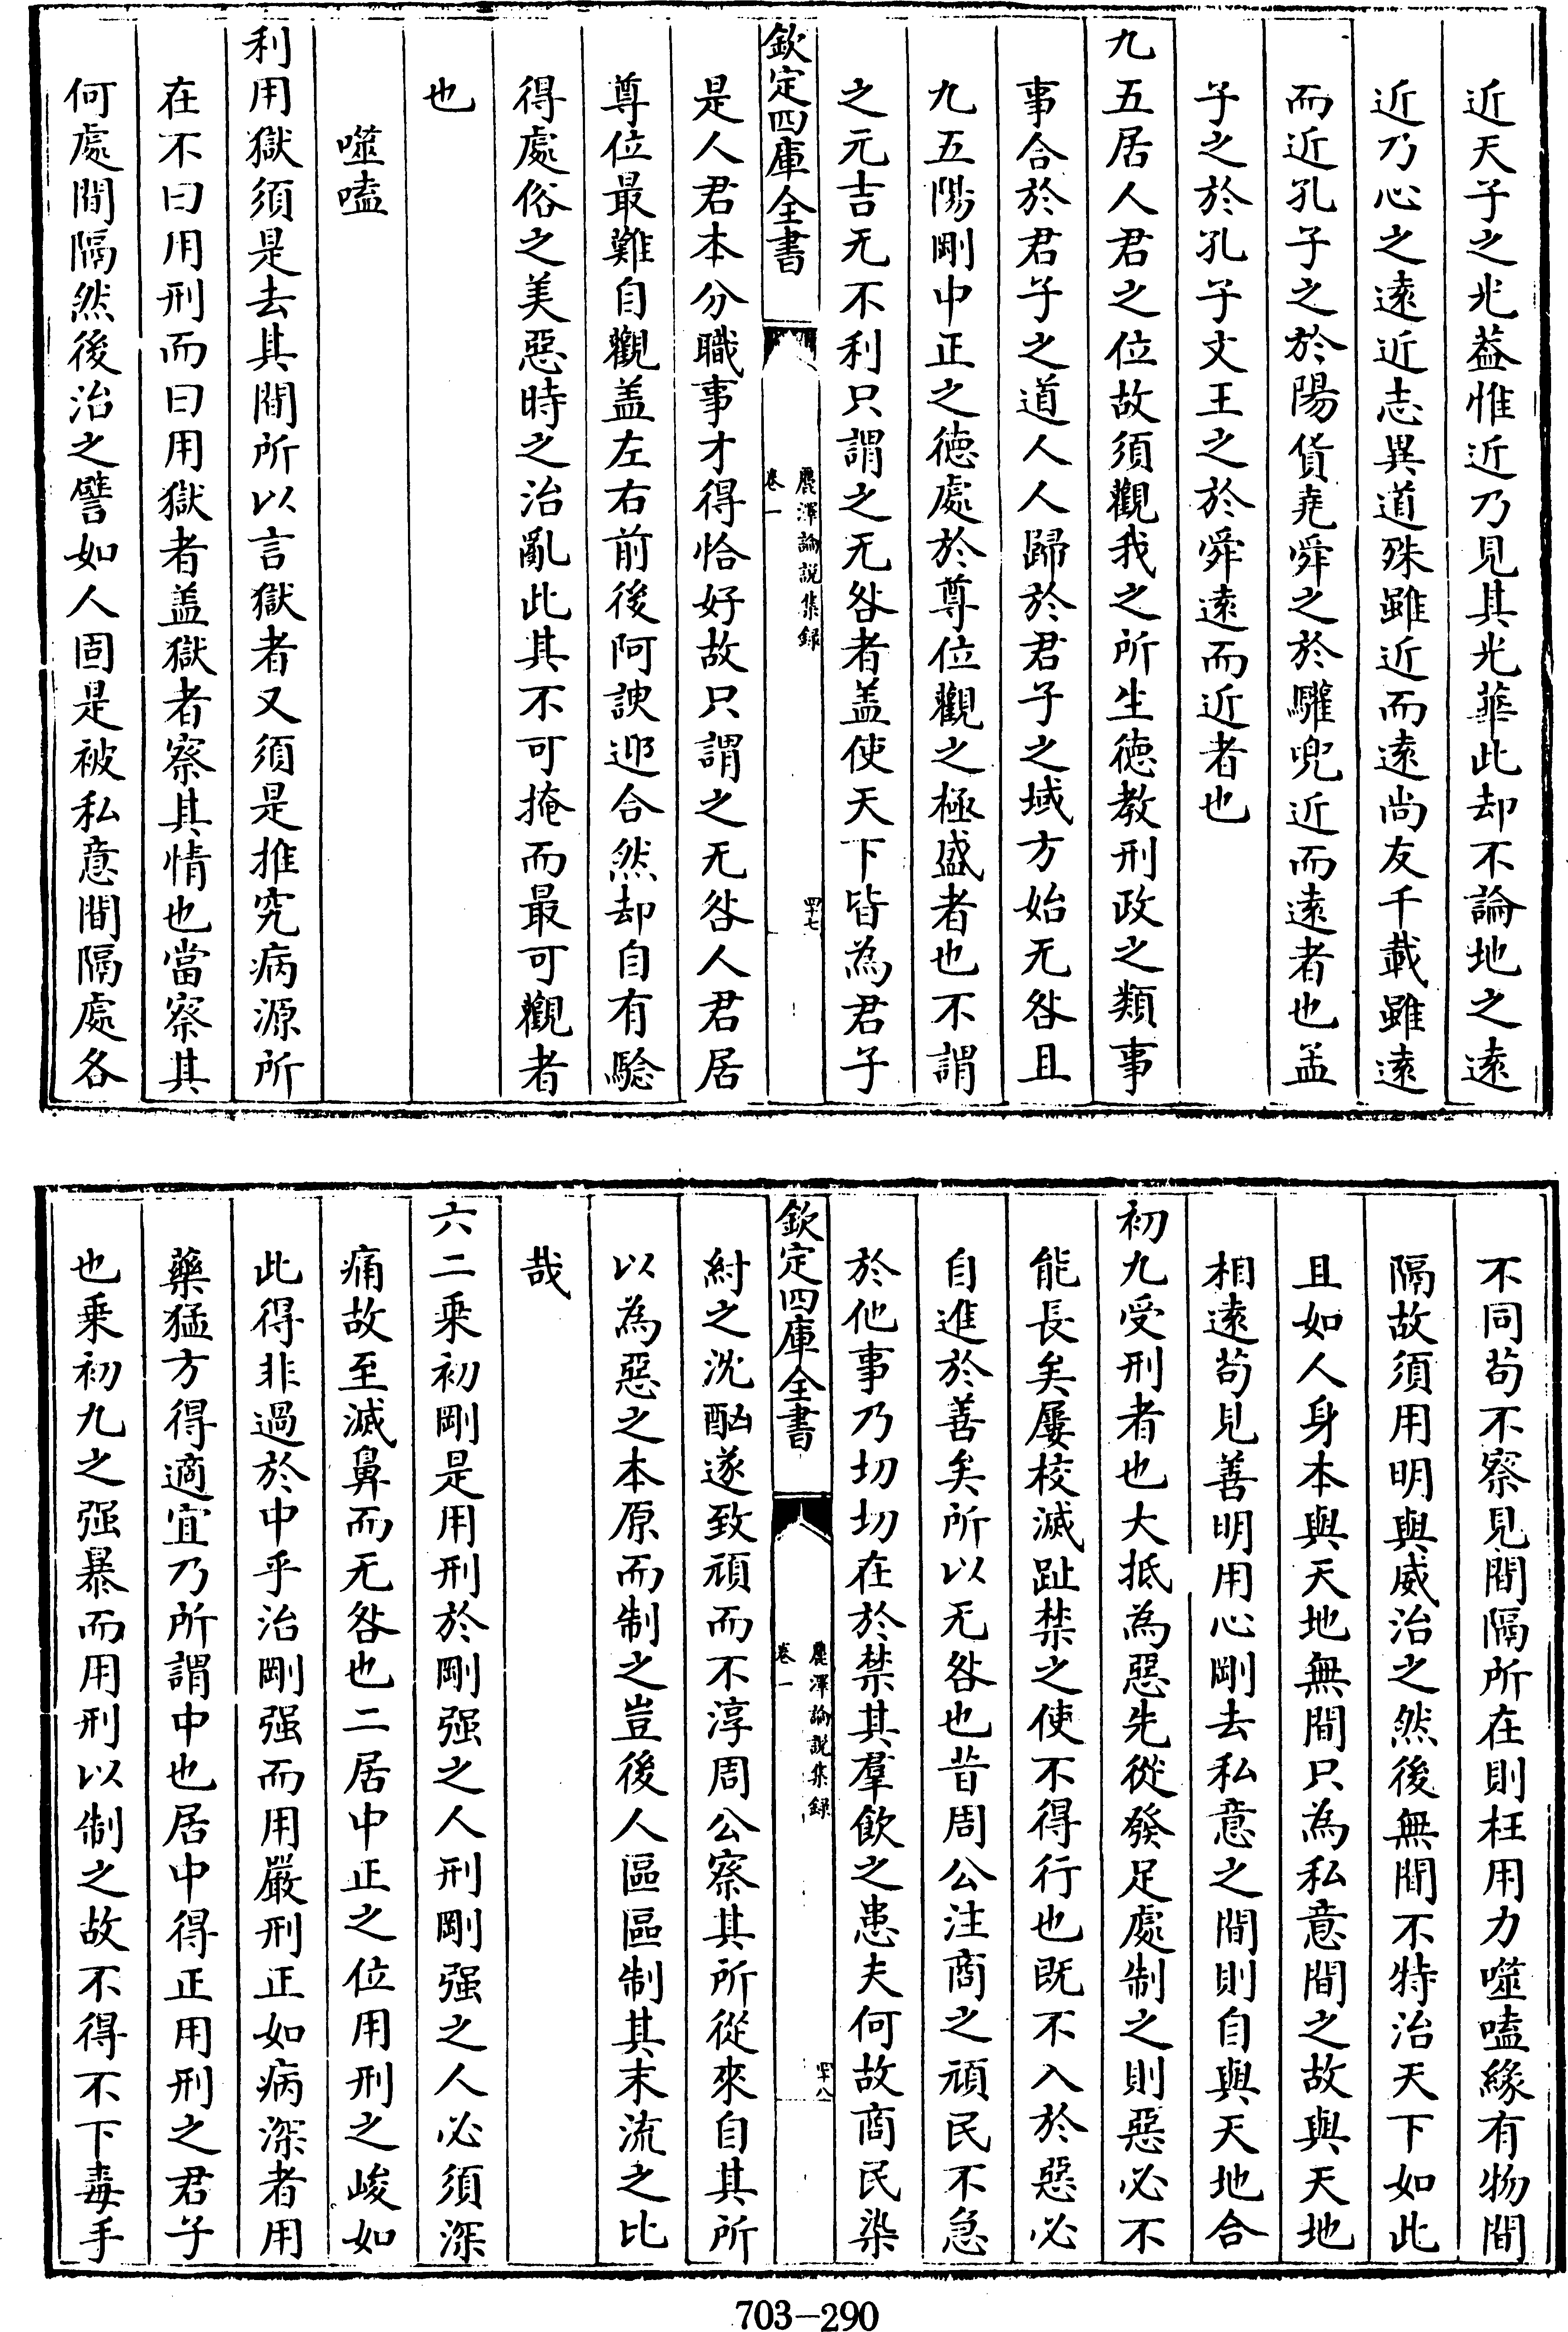 近天子之光葢惟近乃見其光華此却不論地之逺
近乃心之逺近志異道殊雖近而逺尚友千載雖逺
而近孔子之於陽貨堯舜之於驩兜近而逺者也孟
子之於孔子文王之於舜逺而近者也
九五居人君之位故須觀我之所生徳教刑政之類事
事合於君子之道人人歸於君子之域方始无咎且
九五陽剛中正之徳處於尊位觀之極盛者也不謂
之元吉无不利只謂之无咎者盖使天下皆為君子
欽定四庫全書
麗澤論說集録
卷一
四十七
是人君本分職事才得恰好故只謂之无咎人君居
尊位最難自觀盖左右前後阿諛迎合然却自有驗
得處俗之美惡時之治亂此其不可掩而最可觀者
也
噬嗑
利用獄須是去其間所以言獄者又須是推究病源所
在不曰用刑而曰用獄者盖獄者察其情也當察其
何處間隔然後治之譬如人固是被私意間隔處各
不同茍不察見間隔所在則枉用力噬嗑緣有物間
隔故須用明與威治之然後無間不特治天下如此
且如人身本與天地無間只為私意間之故與天地
相逺茍見善明用心剛去私意之間則自與天地合
初九受刑者也大抵為惡先從發足處制之則惡必不
能長矣屨校滅趾禁之使不得行也既不入於惡必
自進於善矣所以无咎也昔周公注商之頑民不急
於他事乃切切在於禁其羣飲之患夫何故商民染
欽定四庫全書
麗澤論說集録
卷一
四十八
紂之沈酗遂致頑而不淳周公察其所從來自其所
以為惡之本原而制之豈後人區區制其末流之比
哉
六二乗初剛是用刑於剛强之人刑剛强之人必須深
痛故至滅鼻而无咎也二居中正之位用刑之峻如
此得非過於中乎治剛强而用嚴刑正如病深者用
藥猛方得適宜乃所謂中也居中得正用刑之君子
也乗初九之强暴而用刑以制之故不得不下毒手
703-290